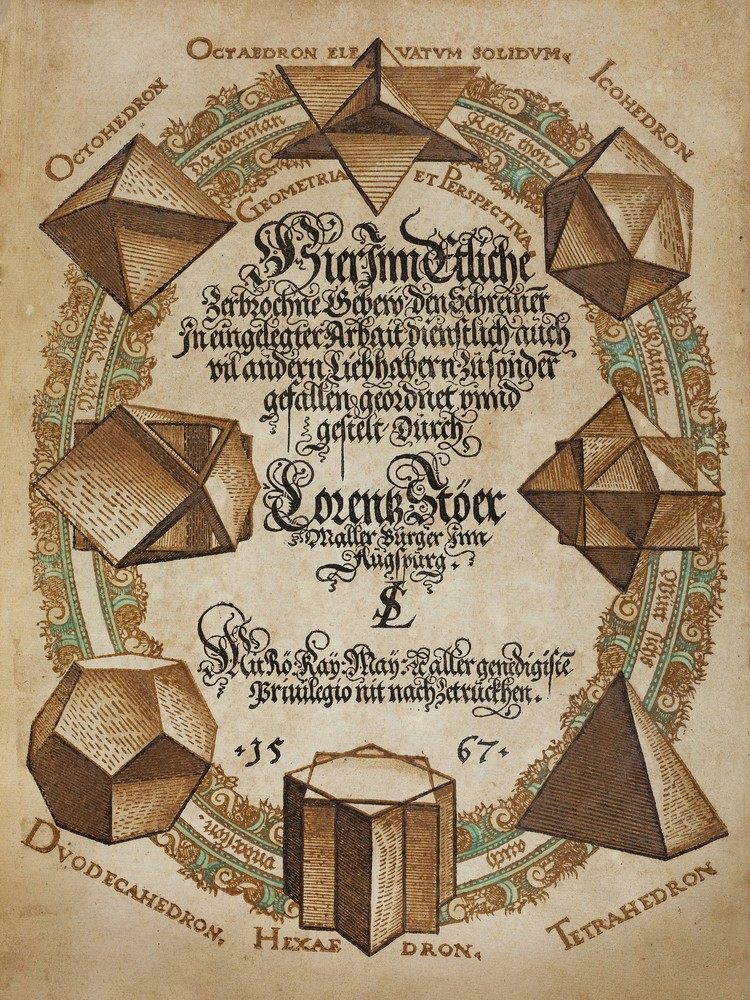 OCTAEDRON ELE VATVM SOLIDVM,
OCTOHEDRON
ICOHEDRON
Da Jderman
Recht thon
GEOMETRIA ET PERSPECTIVA
Hier Jnn Etliche
Zerbrochne Gebew, den Schreiner
Jn eingelegter Arbait dienstlich, auch
vil andern Liebhabern Zu sonder
gefallen geordnet vnnd
gestelt Durch
Lorentz Stöer
Maller Burger Jnn
Augspurg.
LS
Mit Rö: Kaÿ: Maÿ: aller genedigiste
Priuilegio nit nach Zetruckhen.
·15 67·
DVODECAHEDRON,
HEXAE DRON,
TETRAHEDRON
Wer
Kainer
auch